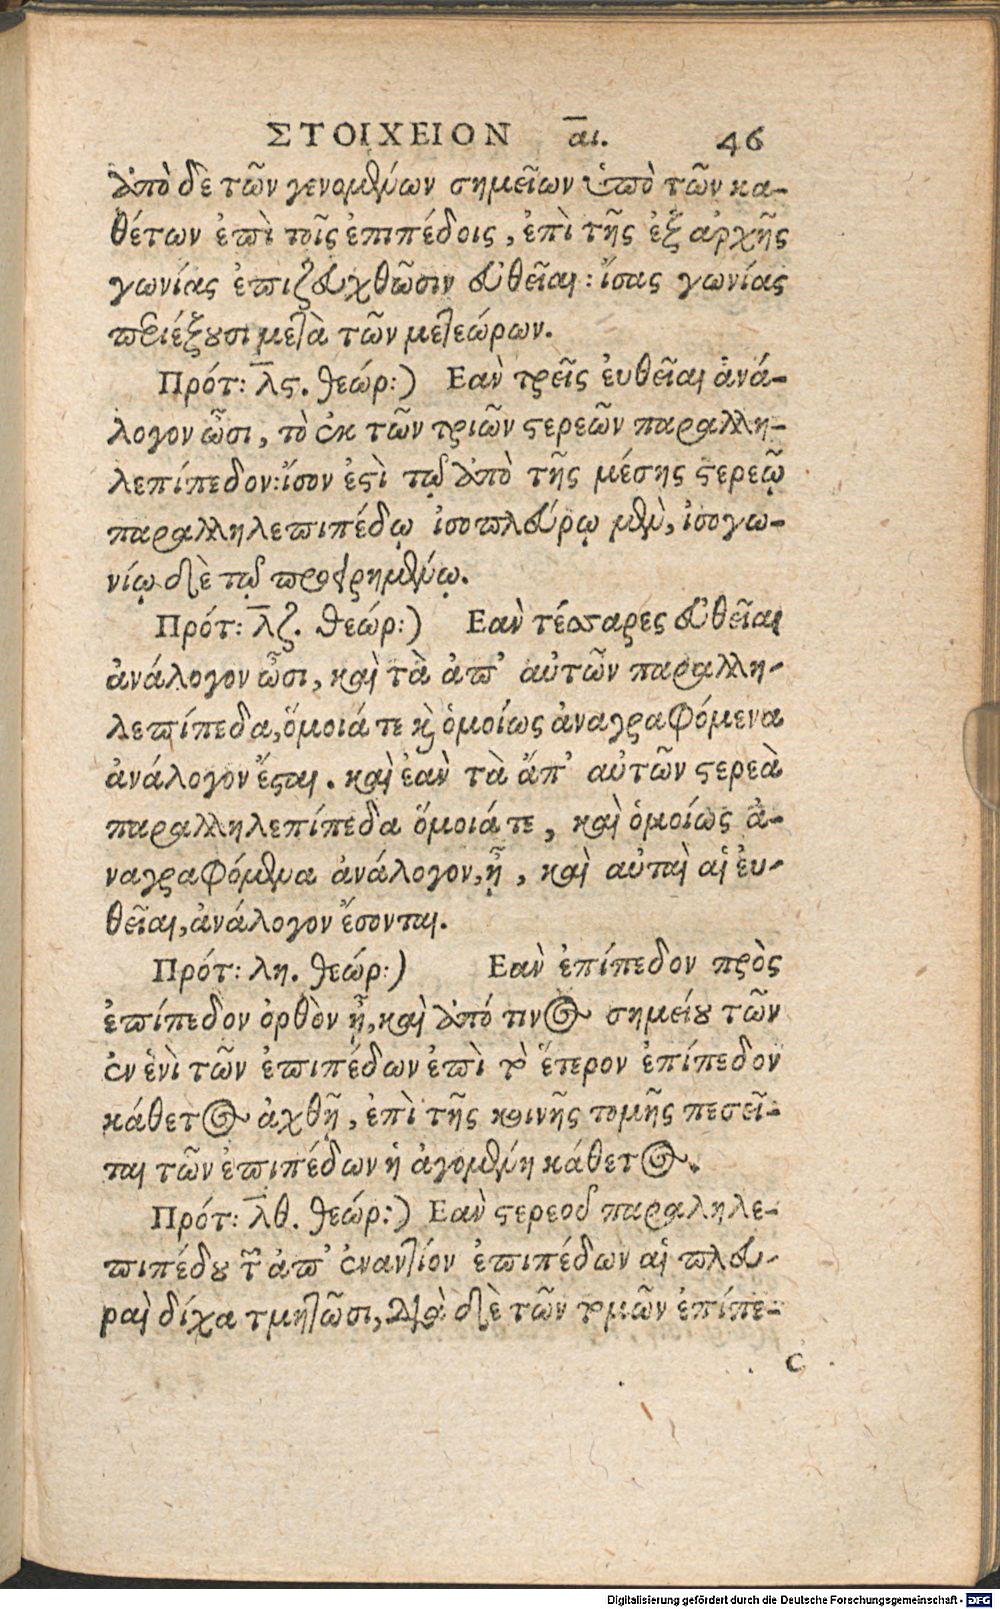 ΣΤΟΙΧΕΙΟΝ α͞ι. 46
ἀπὸ δὲ τῶν γενομένων σημείων ὑπὸ τῶν κα-
θέτων ἐπὶ τοῖς ἐπιπέδοις, ἐπὶ τῆς ἐξ ἀρχῆς
γωνίας ἐπιζευχθῶσιν εὐθεῖαι: ἴσας γωνίας
περιέξουσι μετὰ τῶν μετεώρων.
Πρότ: λ͞ϛ. θεώρ:) Εαν τρεῖς ἐυθεῖαι ἀνά-
λογον ὦσι, τὸ ἐκ τῶν τριῶν στερεῶν παραλλη-
λεπίπεδον: ἴσον ἐστὶ τῷ ἀπὸ τῆς μέσης στερεῷ
παραλληλεπιπέδῳ ἰσοπλεύρῳ μὲν, ἰσογω-
νίῳ δὲ τῷ προειρημένῳ.
Πρότ: λ͞ζ. θεώρ:) Εαν τέσσαρες εὐθεῖαι
ἀνάλογον ὦσι, καὶ τὰ ἀπ’ αὐτῶν παραλλη-
λεπίπεδα, ὅμοιά τε καὶ ὁμοίως ἀναγραφόμενα
ἀνάλογον ἔσται. καὶ ἐαν τὰ ἄπ’ αὐτῶν στερεὰ
παραλληλεπίπεδα ὅμοιά τε, καὶ ὁμοίως ἀ-
ναγραφόμενα ἀνάλογον, ᾖ, καὶ αὐταὶ αἱ ἐυ-
θεῖαι, ἀνάλογον ἔσονται.
Πρότ: λη. θεώρ:) Εαν ἐπίπεδον πρὸς
ἐπίπεδον ὀρθὸν ᾖ, καὶ ἀπό τινος σημείου τῶν
ἐν ἑνὶ τῶν ἐπιπέδων ἐπὶ τὸ ἕτερον ἐπίπεδον
κάθετος ἀχθῇ, ἐπὶ τῆς κοινῆς τομῆς πεσεῖ-
ται τῶν ἐπιπέδων ἡ ἀγομένη κάθετος.
Πρότ: λ͞θ. θεώρ:) Εαν στερεοῦ παραληλε-
πιπέδου τῶν ἀπ’ ἐναντίον ἐπιπέδων αἱ πλευ-
ραὶ δίχα τμητῶσι, διὰ δὲ τῶν τομῶν ἐπίπε-
c
Digitalisierung gefördert durch die Deutsche Forschungsgemeinschaft - DFG